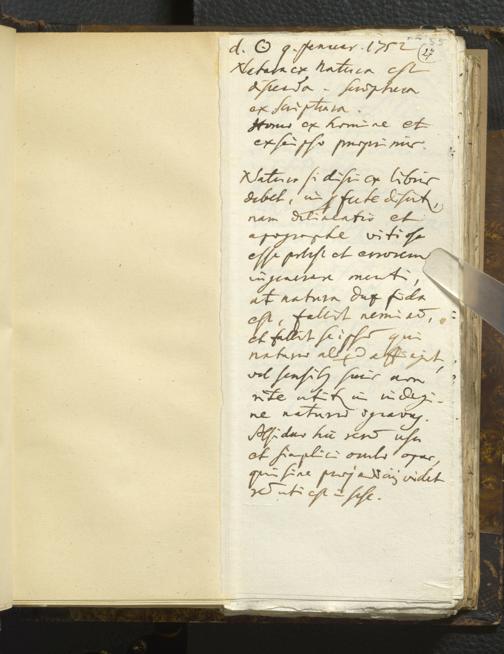 d. ☉ 9. Januar. 1752
Natura ex Natura est
discenda - Scriptura
ex Scriptura.
Homo ex homine et
ex se ipso proprimis.
Natura si disci ex libris
debet, discit,
nam delineatio et
apographe vitiosa
esse potest et errorem
ingenerare menti,
at natura dux fida
est, fallit neminem,
et fallit se ipsum qui
naturae aliquid affingit,
vel sensibus suis non
rite utitur in indagi-
ne naturae
Assiduo rerum usu
et simplici oculo opus,
qui sine praejudiciis videt
rem uti est in sese.